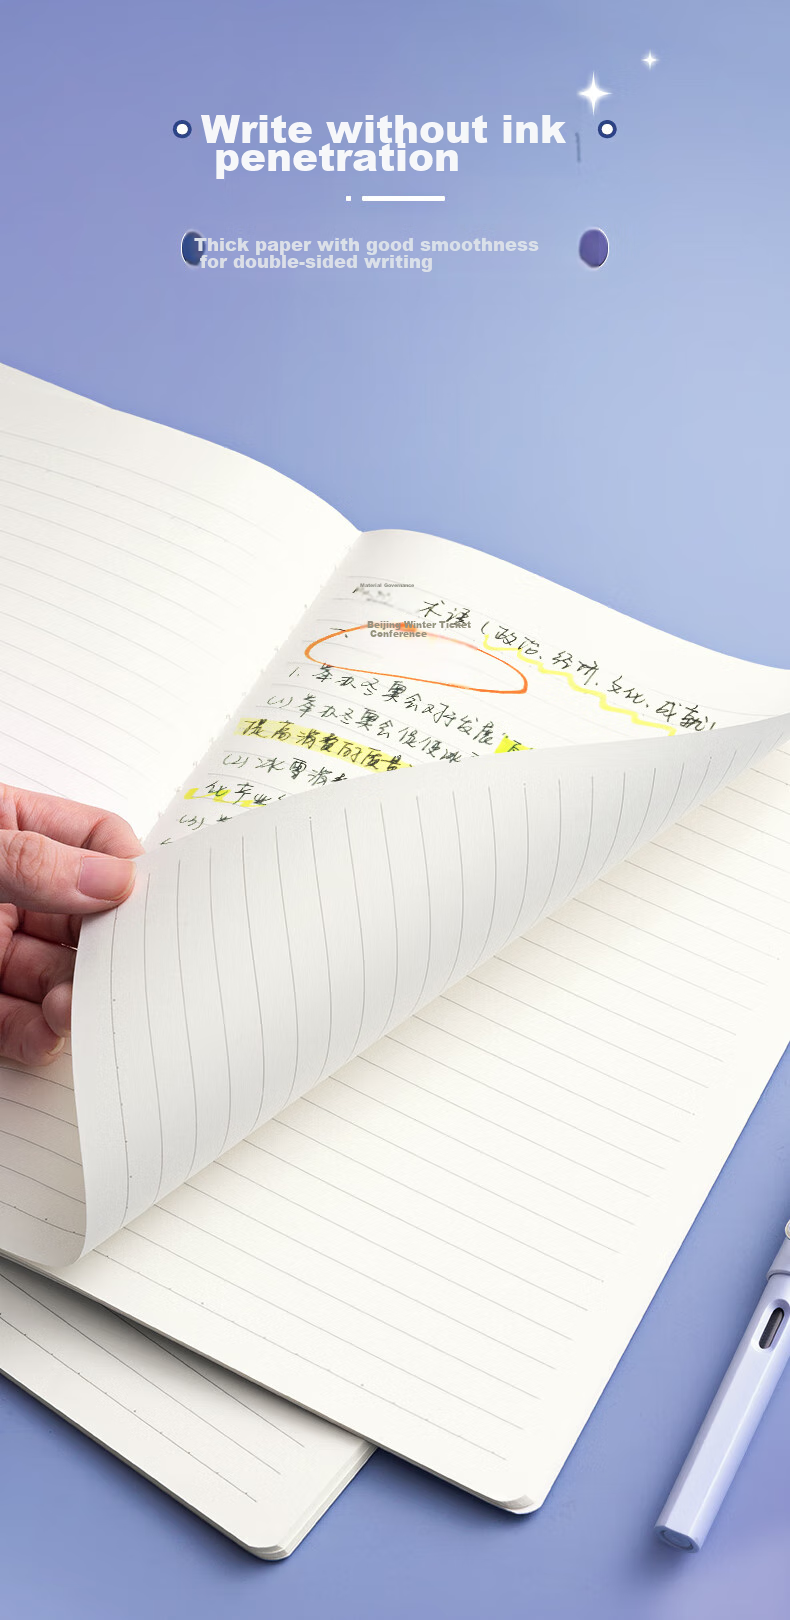 Write without ink
penetration
Thick paper with good smoothness
for double-sided writing
Material Governance
术语(政治、经济、文化、成就)
Beijing Winter Ticket
Conference
1. 举办冬奥会对于发展
(1) 举办冬奥会促使冰
提高消费的质量
(2) 冰雪消
化产业
(3)